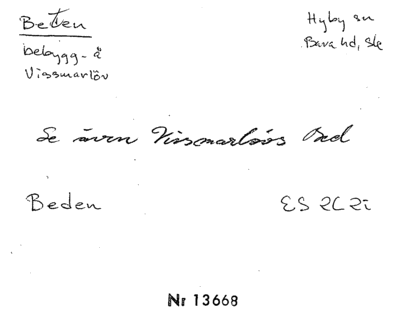 Beten
Hyby sn
bebygg- å
Bara hd, Sk
Vissmarlöv
Se även Vissmarlövs Bed
Beden
ES 2C 2i
Nr 13668